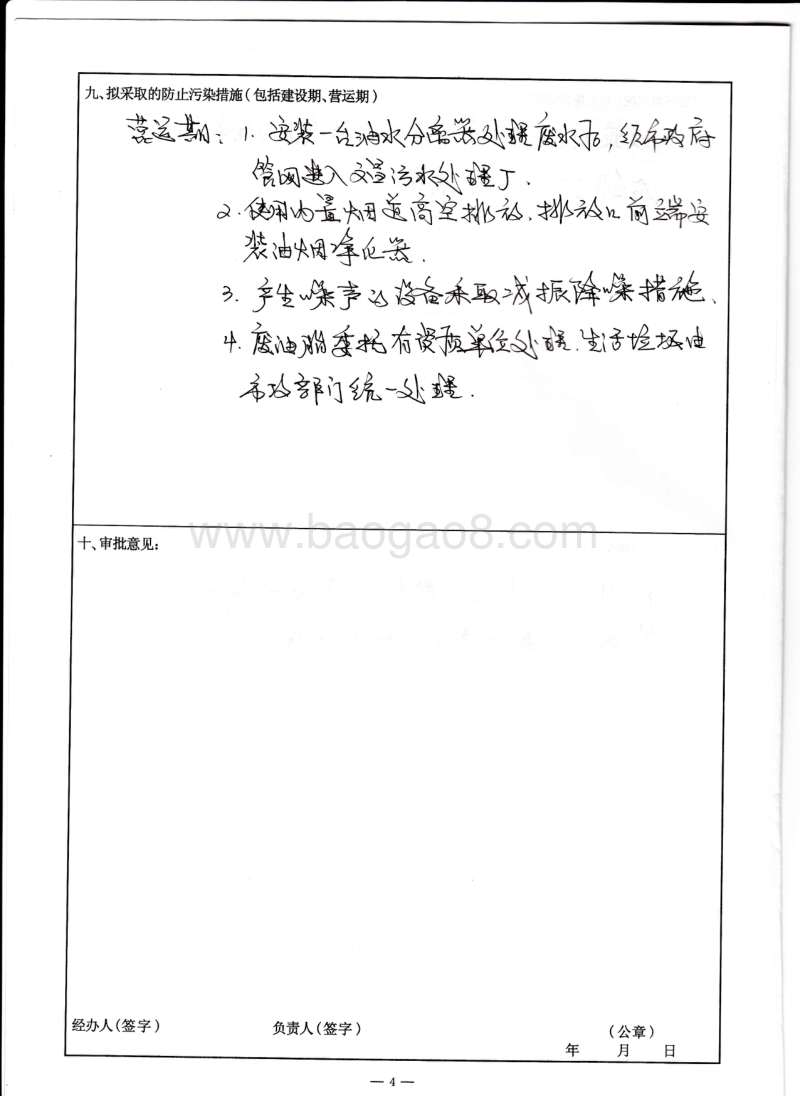 九、拟采取的防止污染措施（包括建设期、营运期）
营运期：1. 安装一台油水分离器处理废水后，经市政府
管网进入文昌污水处理厂.
2. 使用内置烟道高空排放. 排放口前端安
装油烟净化器.
3. 产生噪声的设备采取减振降噪措施、
4. 废油脂委托有资质单位处理. 生活垃圾由
市政部门统一处理.
www.baogao8.com
十、审批意见：
经办人（签字） 负责人（签字） （公章）
年 月 日
— 4 —